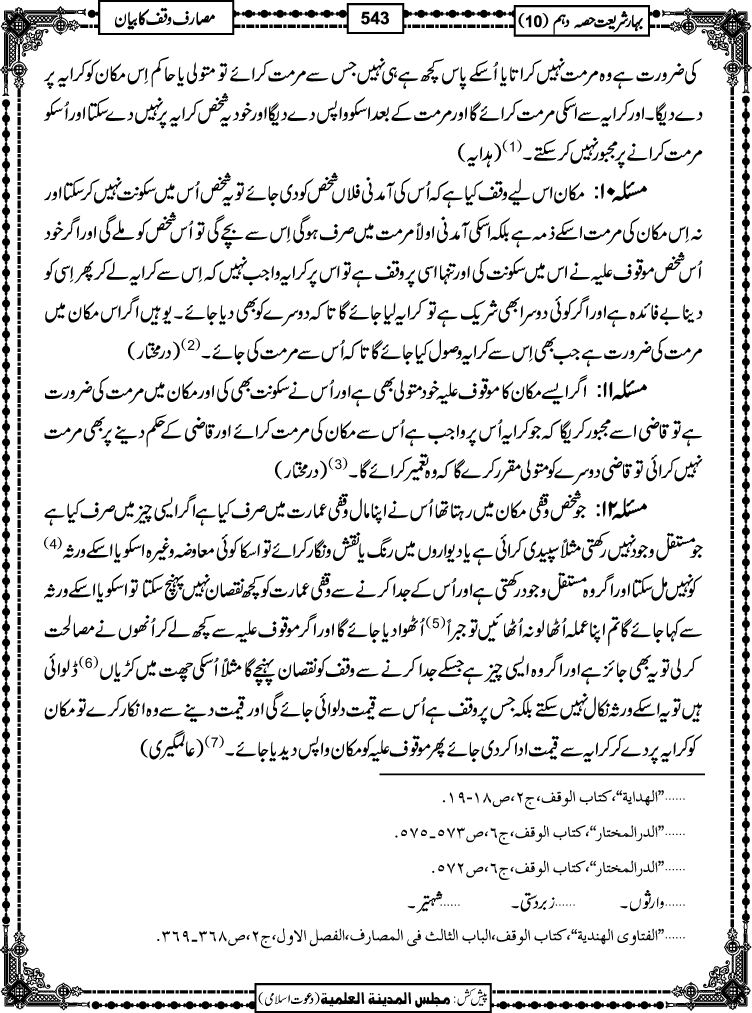 بہار شریعت حصہ دہم (10)
543
مصارف وقف کا بیان
کی ضرورت ہے وہ مرمت نہیں کراتا یا اُسکے پاس کچھ ہے ہی نہیں جس سے مرمت کرائے تو متولی یا حاکم اِس مکان کو کرایہ پر
دے دیگا۔ اور کرایہ سے اسکی مرمت کرائے گا اور مرمت کے بعد اسکو واپس دے دیگا اور خود یہ شخص کرایہ پر نہیں دے سکتا اور اُسکو
مرمت کرانے پر مجبور نہیں کرسکتے۔(1) (ہدایہ)
مسئلہ ۱۰: مکان اس لیے وقف کیا ہے کہ اُس کی آمدنی فلاں شخص کو دی جائے تو یہ شخص اُس میں سکونت نہیں کرسکتا اور
نہ اِس مکان کی مرمت اسکے ذمہ ہے بلکہ اسکی آمدنی اولاً مرمت میں صرف ہوگی اِس سے بچے گی تو اُس شخص کو ملے گی اور اگر خود
اُس شخص موقوف علیہ نے اس میں سکونت کی اور تنہا اسی پر وقف ہے تو اس پر کرایہ واجب نہیں کہ اِس سے کرایہ لے کر پھر اِسی کو
دینا بے فائدہ ہے اور اگر کوئی دوسرا بھی شریک ہے تو کرایہ لیا جائے گا تاکہ دوسرے کو بھی دیا جائے۔ یوہیں اگر اس مکان میں
مرمت کی ضرورت ہے جب بھی اِس سے کرایہ وصول کیا جائے گا تاکہ اُس سے مرمت کی جائے۔(2) (درمختار)
مسئلہ ۱۱: اگر ایسے مکان کا موقوف علیہ خود متولی بھی ہے اور اُس نے سکونت بھی کی اور مکان میں مرمت کی ضرورت
ہے تو قاضی اسے مجبور کریگا کہ جو کرایہ اُس پر واجب ہے اُس سے مکان کی مرمت کرائے اور قاضی کے حکم دینے پر بھی مرمت
نہیں کرائی تو قاضی دوسرے کو متولی مقرر کرے گا کہ وہ تعمیر کرائے گا۔(3) (درمختار)
مسئلہ ۱۲: جو شخص وقفی مکان میں رہتا تھا اُس نے اپنا مال وقفی عمارت میں صرف کیا ہے اگر ایسی چیز میں صرف کیا ہے
جو مستقل وجود نہیں رکھتی مثلاً سپیدی کرائی ہے یا دیواروں میں رنگ یا نقش ونگار کرائے تو اسکا کوئی معاوضہ وغیرہ اسکو یا اسکے ورثہ (4)
کو نہیں مل سکتا اور اگر وہ مستقل وجود رکھتی ہے اور اُس کے جدا کرنے سے وقفی عمارت کو کچھ نقصان نہیں پہنچ سکتا تو اسکو یا اسکے ورثہ
سے کہا جائے گا تم اپنا عملہ اُٹھا لو نہ اُٹھائیں تو جبراً(5) اُٹھوا دیا جائے گا اور اگر موقوف علیہ سے کچھ لے کر اُنھوں نے مصالحت
کرلی تو یہ بھی جائز ہے اور اگر وہ ایسی چیز ہے جسکے جدا کرنے سے وقف کو نقصان پہنچے گا مثلاً اُسکی چھت میں کڑیاں (6) ڈلوائی
ہیں تو یہ اسکے ورثہ نکال نہیں سکتے بلکہ جس پر وقف ہے اُس سے قیمت دلوائی جائے گی اور قیمت دینے سے وہ انکار کرے تو مکان
کو کرایہ پر دے کر کرایہ سے قیمت ادا کردی جائے پھر موقوف علیہ کو مکان واپس دیدیا جائے۔(7) (عالمگیری)
......”الھداية“،کتاب الوقف،ج٢،ص١٨-١٩.
......”الدرالمختار“،کتاب الوقف،ج٦،ص٥٧٣۔٥٧٥.
......”الدرالمختار“،کتاب الوقف،ج٦،ص٥٧٢.
......وارثوں۔ ......زبردستی۔ ......شہتیر۔
......”الفتاوی الھندية“،کتاب الوقف،الباب الثالث فی المصارف،الفصل الاول،ج٢،ص٣٦٨۔٣٦٩.
پیش کش: مجلس المدینۃ العلمیۃ (دعوت اسلامی)